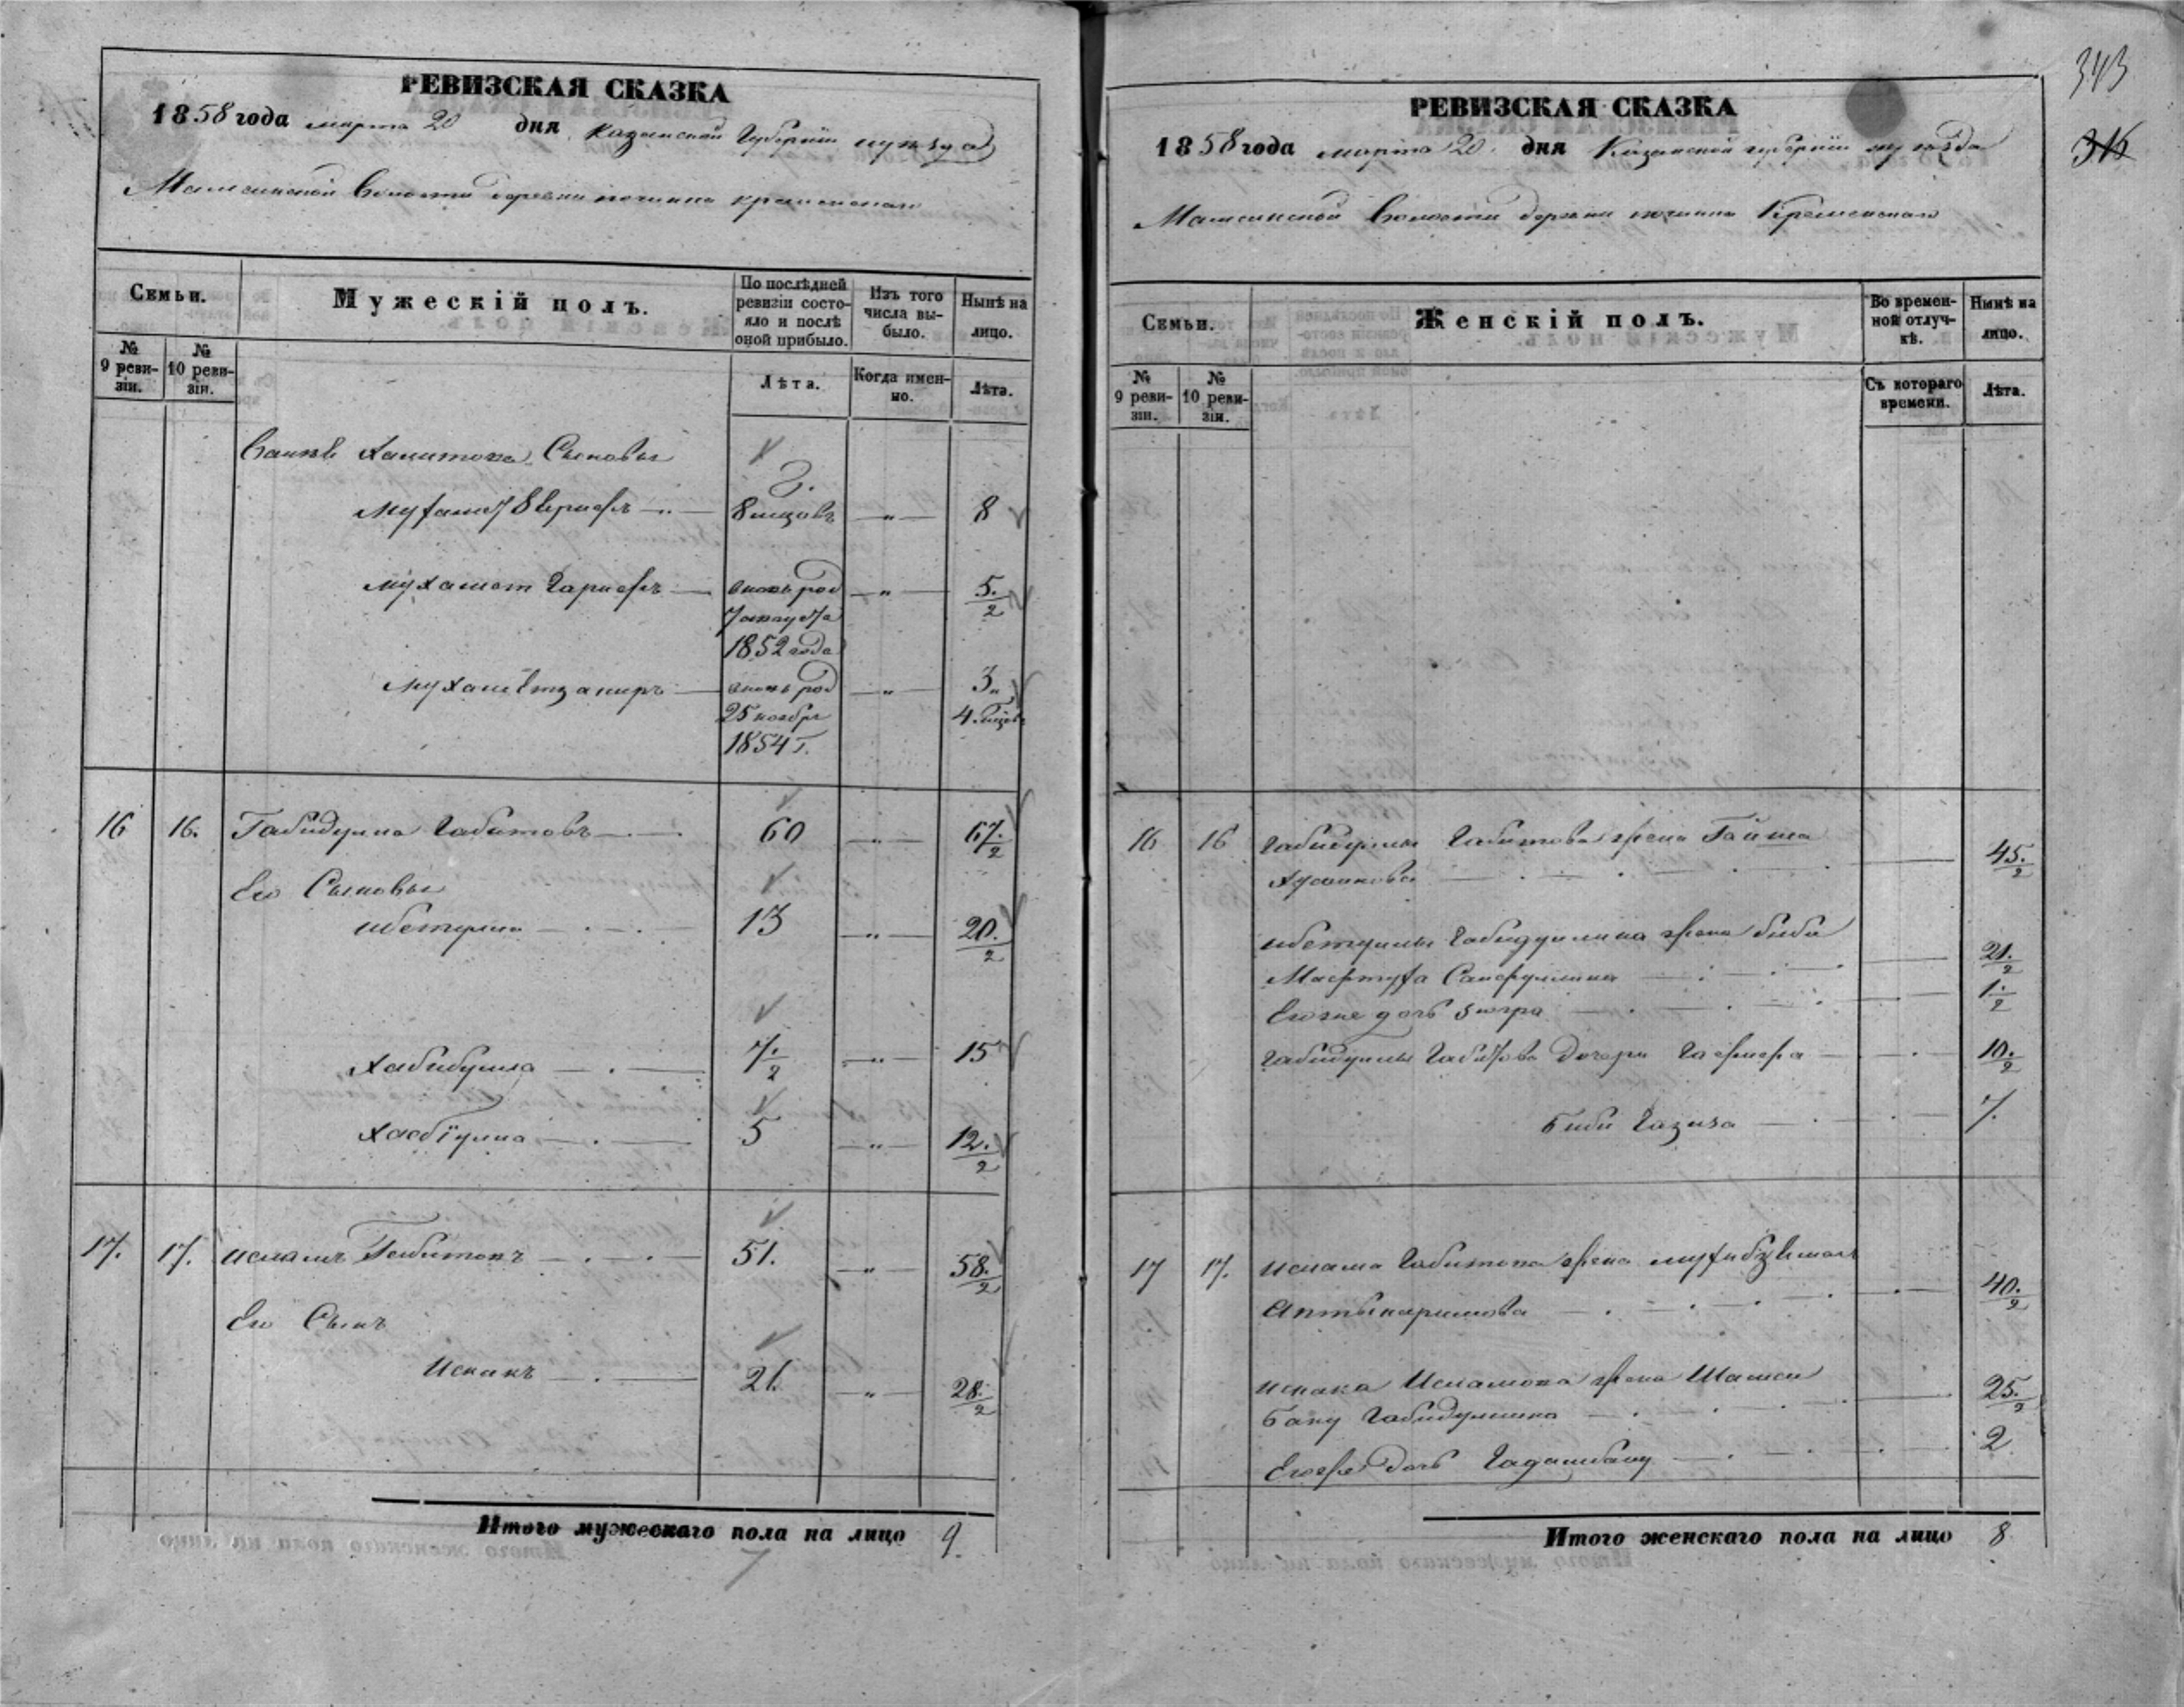 РЕВИЗСКАЯ СКАЗКА
1858 года марта 20 дня Казанской Губернии и уезда
Мамсинской Волости деревни починка Кременскаго
Семьи.
Мужескій полъ.
По послѣдней ревизіи состояло и послѣ оной прибыло.
Изъ того числа выбыло.
Нынѣ на лицо.
№ 9 ревизіи.
№ 10 ревизіи.
Лѣта.
Когда именно.
Лѣта.
Хамитова Сыновья
8 мцовъ — „ — 8
Мухамет Гарифъ — вновь род — „ — 5. 1/2
7 августа
1852 года
вновь род — „ — 3„
25 ноября 4 мцов
1854 г.
16 16. Габидулла Габитовъ — 60 — „ — 67. 1/2
Его Сыновья
ибетулла — 13 — „ — 20. 1/2
Хабибулла — 7. 1/2 — „ — 15
Хасбiулла — 5 — „ — 12. 1/2
17. 17. Исламъ Габитовъ — 51. — „ — 58. 1/2
Его Сынъ
Искакъ — 21. — „ — 28. 1/2
Итого мужескаго пола на лицо 9.
343
316
РЕВИЗСКАЯ СКАЗКА
1858 года марта 20. дня Казанской губернии и уезда
Мамсинской Волости деревни починка Кременскаго
Семьи.
Женскій полъ.
Во временной отлучкѣ.
Нынѣ на лицо.
№ 9 ревизіи.
№ 10 ревизіи.
Съ котораго времени.
Лѣта.
16 16 Габидуллы Габитова жена Гайша
— 45. 1/2
ибетуллы Габидуллина жена биби
Магфтуха — 21. 1/2
Его же дочь Зюгра — 1. 1/2
Габидуллы Габитова дочери — 10. 1/2
Биби Газиза — 7.
17 17. Ислама Габитова жена
Аптыкаримова — 40. 1/2
Искака Исламова жена Шамси
Бану Габидуллина — 25. 1/2
Его же дочь Бадамбану — 2
Итого женскаго пола на лицо 8